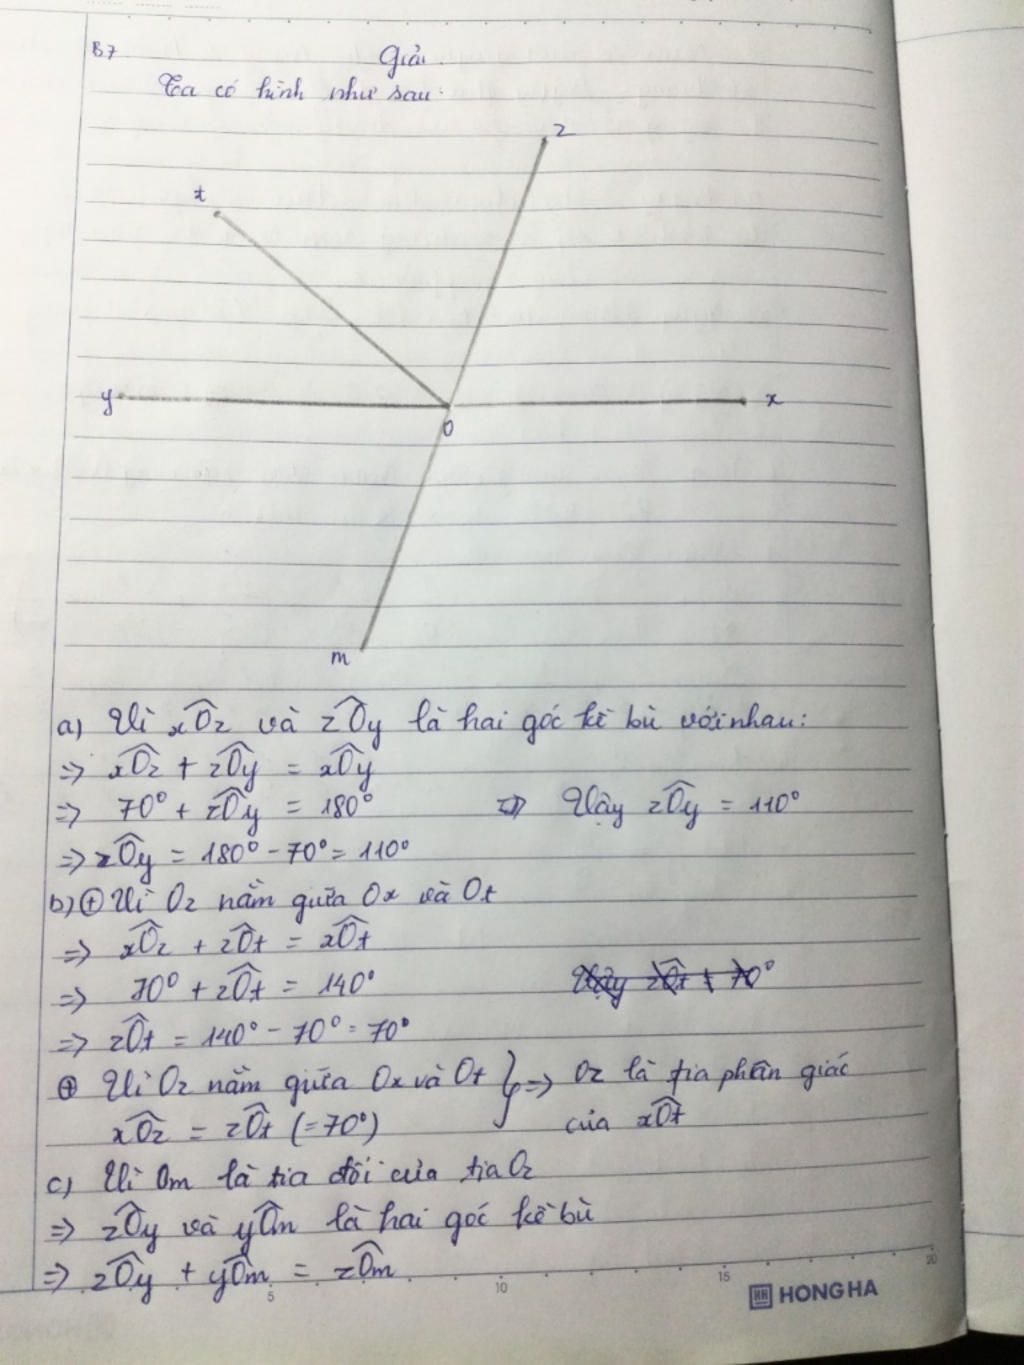 B7
Giải.
Ta có hình như sau:
z
t
y
x
O
m
a) Vì xÔz và zÔy là hai góc kề bù với nhau:
=> xÔz + zÔy = xÔy
=> 70° + zÔy = 180° => Vậy zÔy = 110°
=> zÔy = 180° - 70° = 110°
b) ⊕ Vì Oz nằm giữa Ox và Ot
=> xÔz + zÔt = xÔt
=> 70° + zÔt = 140°
=> zÔt = 140° - 70° = 70°
⊕ Vì Oz nằm giữa Ox và Ot } => Oz là tia phân giác
xÔz = zÔt (=70°) của xÔt
c) Vì Om là tia đối của tia Oz
=> zÔy và yÔm là hai góc kề bù
=> zÔy + yÔm = zÔm
5 10 15 20
HH HONG HA